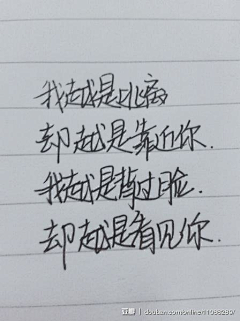 我越是逃离
却越是靠近你.
我越是掉过脸.
却越是看见你.
豆瓣/douban.com/online/11088289/